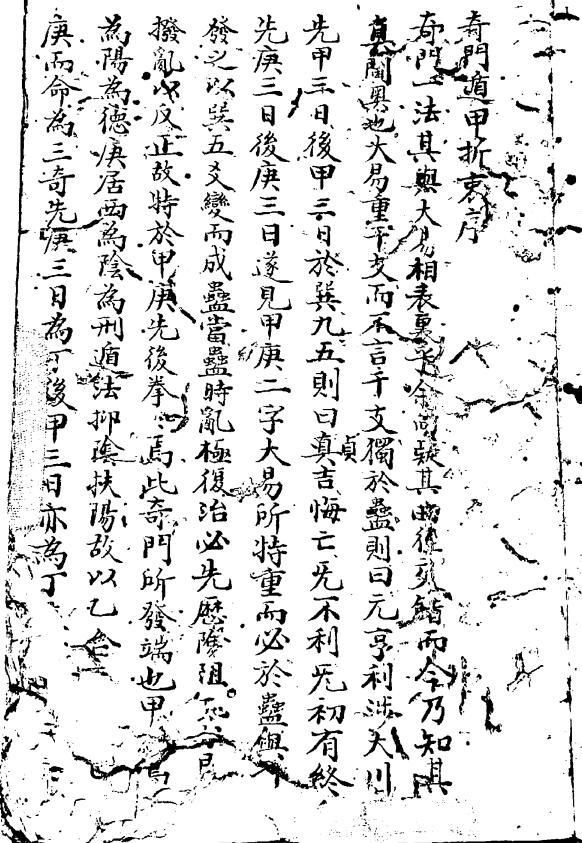 奇門遁甲折衷序
奇門一法其與大易相表裏乎余向疑其幽徑而今乃知其
真閫奥也大易重干支而不言干支獨於蠱則曰元亨利涉大川
先甲三日後甲三日於巽九五則曰真貞吉悔亡旡不利旡初有終
先庚三日後庚三日遂見甲庚二字大易所特重而必於蠱與
發之以巽五爻變而成蠱當蠱時亂極復治必先歷險阻
撥亂以反正故特於甲庚先後拳〻焉此奇門所發端也甲
為陽為德庚居西為陰為刑遁法抑陰扶陽故以乙合
庚而命為三奇先庚三日為丁後甲三日亦為丁